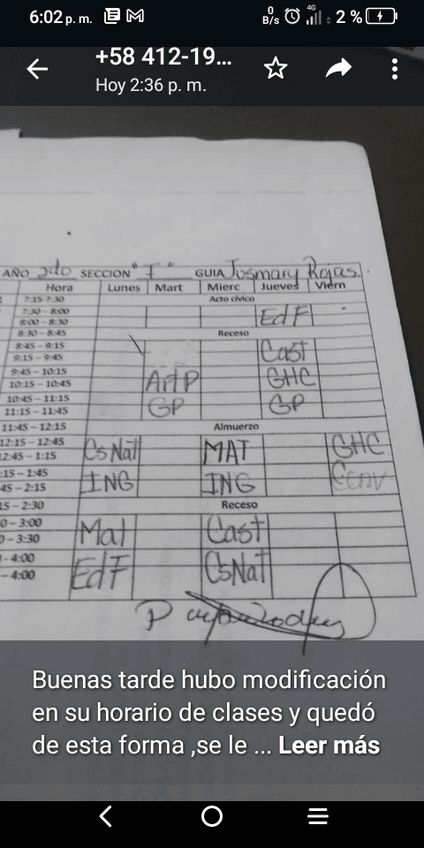 6:02 p. m. 0 B/s 4G 2 %
+58 412-19...
Hoy 2:36 p. m.
AÑO 2do SECCION "I" GUIA Josmary Rojas.
Hora Lunes Mart Mierc Jueves Viern
7:15-7:30 Acto cívico
7:30 - 8:00
8:00 - 8:30 EdF
8:30 - 8:45 Receso
8:45 - 9:15
9:15 - 9:45 Cast
9:45 - 10:15
10:15 - 10:45 ArtP GHC
10:45 - 11:15
11:15 - 11:45 GP GP
11:45 - 12:15 Almuerzo
12:15 - 12:45 CsNat MAT GHC
12:45 - 1:15
:15 - 1:45 ING ING
45 - 2:15
15 - 2:30 Receso
0 - 3:00 Mat Cast
0 - 3:30
- 4:00 EdF CsNat
- 4:00
Buenas tarde hubo modificación
en su horario de clases y quedó
de esta forma ,se le ... Leer más